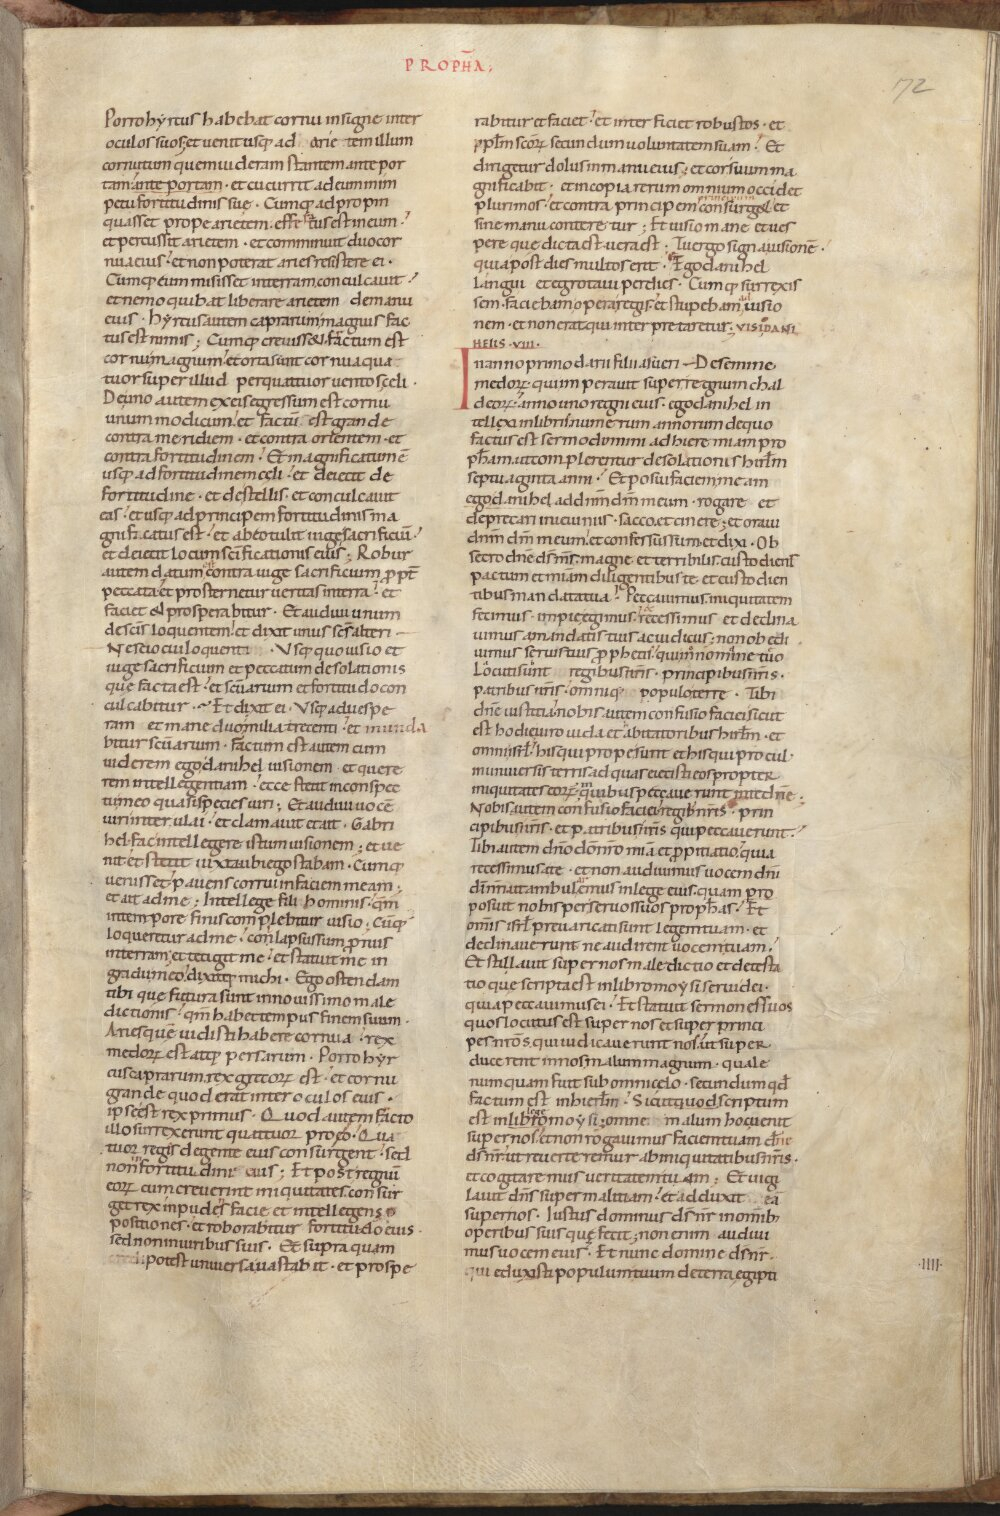 PROPHA;
72
Porro hyrcus habebat cornu insigne inter
oculos suos; et venit usq; ad arietem illum
cornutum quem videram stantem ante por
tam ante portam · et cucurrit ad eum inim
petu fortitudinis sue · Cumq; adpropin
quasset prope arietem · efferatus est in eum ·
et percussit arietem · et comminuit duo cor
nua eius · et non poterat aries resistere ei ·
Cumq; eum misisset in terram conculcavit ·
et nemo quibat liberare arietem de manu
eius · Hyrcus autem caprarum magnus fac
tus est nimis ; Cumq; crevisset fractum est
cornu magnum et orta sunt cornua qua
tuor super illud per quattuor ventos celi ·
De uno autem ex eis egressum est cornu
unum modicum · et factũ est grande
contra meridiem · et contra orientem · et
contra fortitudinem · Et magnificatum ẽ
usq; ad fortitudinem celi · et deiecit de
fortitudine · et de stellis · et conculcavit
eas · et usq; ad principem fortitudinis ma
gnificatus est · et ab eo tulit iuge sacrificiũ ·
et deiecit locum sc̃ificationis eius ; Robur
autem datum est contra iuge sacrificium ꝓpt̃
peccata et prosternetur veritas in terra · et
faciet & prosperabitur · Et audivi unum
de sc̃is loquentem · et dixit unus sc̃s alteri
Nescio cui loquenti · Usq; quo visio et
iuge sacrificium et peccatum desolationis
que facta est · et sc̃uarium et fortitudo con
culcabitur · Et dixit ei · Usq; ad vespe
ram et mane duo milia trecenti · et munda
bitur sc̃uarium · Factum est autem cum
viderem ego danihel visionem et quere
rem intellegentiam · ecce stetit in conspec
tu meo quasi species viri ; Et audivi vocẽ
viri inter ulai · et clamavit et ait · Gabri
hel fac intellegere istum visionem ; et ve
nit et stetit iuxta ubi ego stabam · Cumq;
venisset pavens corrui in faciem meam ;
et ait ad me ; Intellege fili hominis · qm̃
in tempore finis complebitur visio · Cũq;
loqueretur ad me · conlapsus sum pronus
in terram et tetigit me · et statuit me in
gradu meo dixitq; michi · Ego ostendam
tibi que futura sunt in novissimo male
dictionis · qm̃ habet tempus finem suum ·
Aries quẽ vidisti habere cornua · rex
medorꝝ est atq; persarum · Porro hyr
cus caprarum rex grecorꝝ est · et cornu
grande quod erat inter oculos eius ·
ipse est rex primus · Quod autem facto
illo surrexerunt quattuor pro eo · Qua
tuor reges de gente eius consurgent · sed
non in fortitudine eius ; Et post regnũ
eorꝝ cum creverint iniquitates · consur
get rex inpudes facie et intellegens
positiones · et roborabitur fortitudo eius ·
sed non in viribus suis · Et supra quam
credi potest universa vastabit · et prospe
rabitur et faciet · et interficiet robustos · et
ppl̃m sc̃orꝝ secundum voluntatem suam · Et
dirigetur dolus in manu eius ; et cor suum ma
gnificabit · et in copia rerum omnium occidet
plurimos · et contra principem principium consurget et
sine manu conteretur ; Et visio mane et ves
pere que dicta est vera est · Tu ergo signa visionẽ ·
quia post dies multos erit · Et ego danihel
langui et egrotavi per dies · Cumq; surrexis
sem · faciebam opera regis et stupebam ad visio
nem · et non erat qui interpretaretur ; VISIO DANI
HELIS · VIII ·
In anno primo darii filii asueri De semine
medorꝝ · qui imperavit super regnum chal
deorꝝ · anno uno regni eius · ego danihel in
tellexi in libris numerum annorum de quo
factus est sermo domini ad hieremiam pro
ph̃am ut complerentur desolationis hirl̃m
septuaginta anni · Et posui faciem meam
ego danihel ad dnm̃ dm̃ meum · rogare et
deprecari in ieiuniis · sacco · et cinere ; et oravi
dnm̃ dm̃ meum et confessus sum et dixi · Ob
secro dnẽ ds̃ ms̃ · magne et terribilis · custodiens
pactum et mĩam diligentibus te et custodien
tibus mandata tua · Peccavimus · iniquitatem
fecimus · impie egimus · recessimus et declina
vimus a mandatis tuis ac iudiciis ; non obedi
vimus servis tuis ꝓphetis qui in nomine tuo
locuti sunt regibus nr̃is · principibus nr̃is ·
patribus nr̃is · omniq; populo terre · Tibi
dnẽ iustitia · nobis autem confusio faciei sicut
est hodie viro iuda et abitatoribus hirl̃m · et
omni isrl̃ · his qui prope sunt et his qui procul ·
in universis terris ad quas eiecisti eos propter
iniquitates eorꝝ in quibus peccaverunt in te dnẽ ;
Nobis autem confusio faciei regib; nr̃is · prin
cipibus nr̃is · et patribus nr̃is qui peccaverunt ·
Tibi autem dnõ dõ nrõ mĩa et propitiatio · quia
recessimus a te · et non audivimus vocem dnĩ
dĩ nr̃i ut ambularemus in lege eius · quam pro
posuit nobis per servos suos proph̃as · Et
om̃is isrl̃ prevaricati sunt legem tuam · et
declinaverunt ne audirent vocem tuam ·
Et stillavit super nos maledictio et detesta
tio que scripta est in libro moysi servi dei ·
quia peccavimus ei · Et statuit sermones suos
quos locutus est super nos et super princi
pes nrõs · qui iudicaverunt nos · ut super
ducerent in nos malum magnum · quale
numquam fuit sub omni celo · secundum qd̃
factum est in hierl̃m · Sicut quod scriptum
est in lib̃ lege moysi ; omne malum hoc venit
super nos · et non rogavimus faciem tuam dñe
ds̃ nr̃ · ut reverteremur ab iniquitatibus nr̃is ·
et cogitaremus veritatem tuam ; Et vigi
lavit dns̃ super malitiam · et adduxit eã
super nos · Iustus dominus ds̃ nr̃ in omib;
operibus suis que fecit ; non enim audivi
mus vocem eius · Et nunc domine ds̃ nr̃ ·
qui eduxisti populum tuum de terra egipti
·IIII·